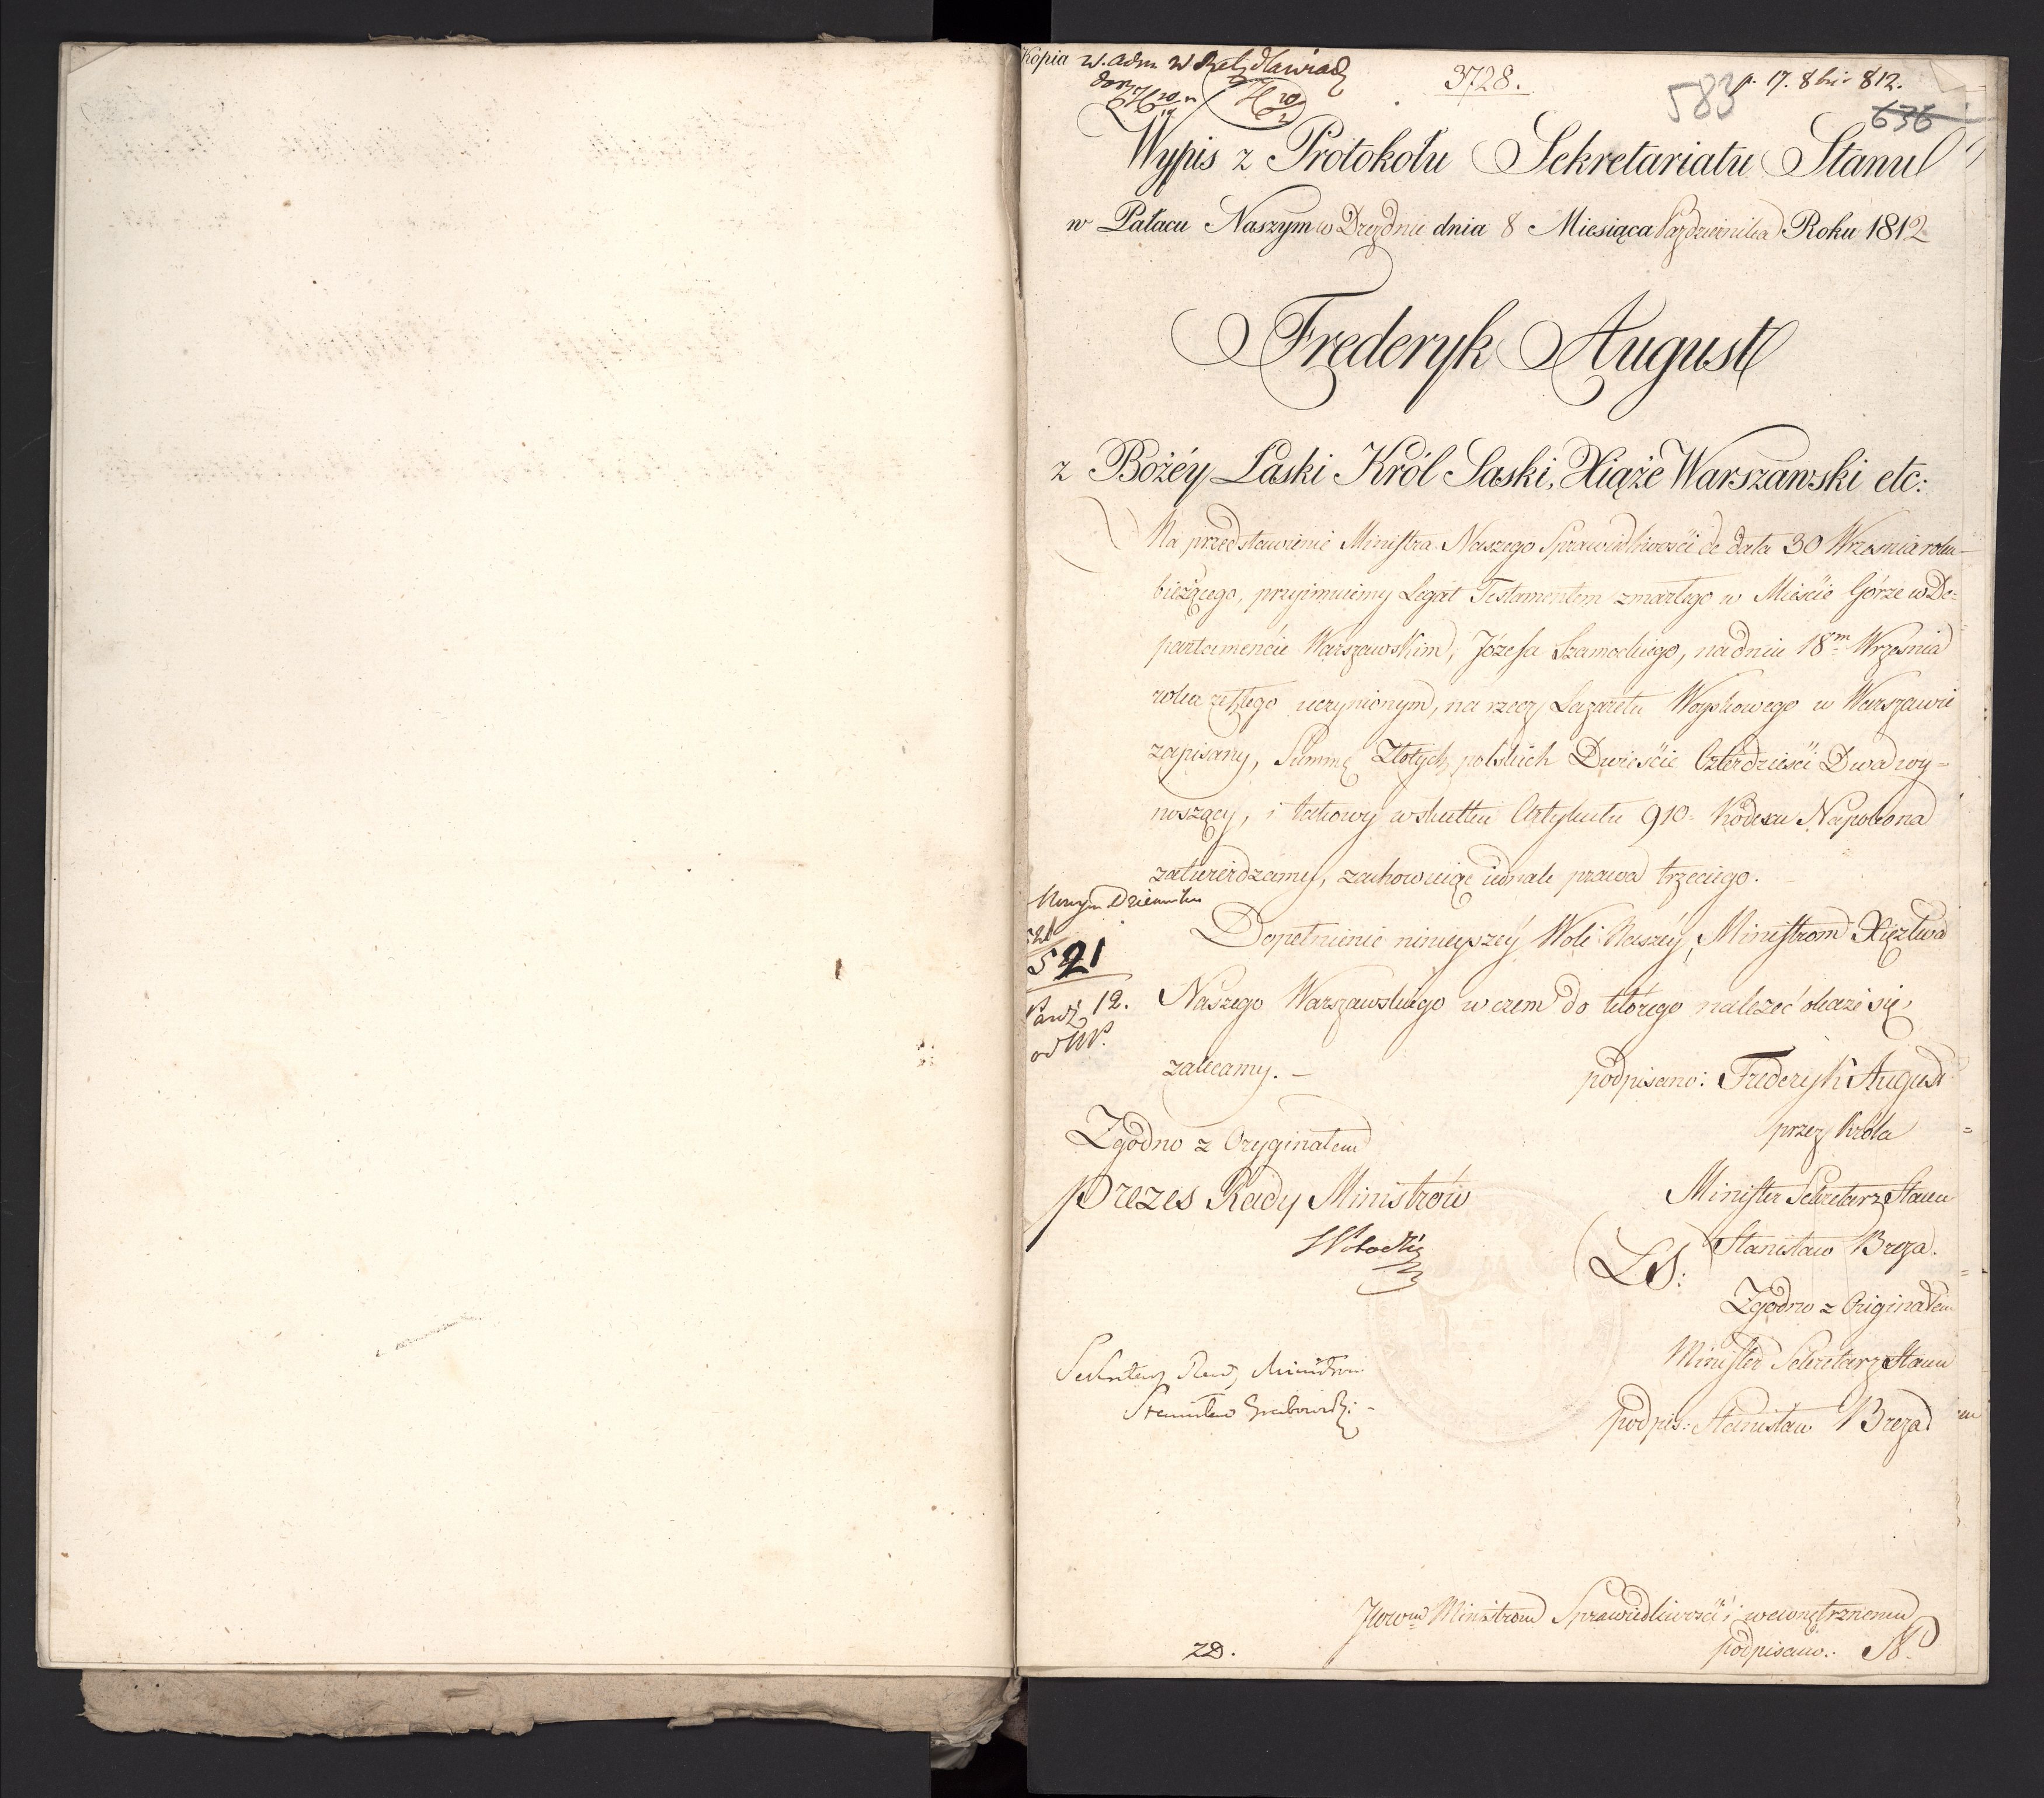 Kopia w. adm w
3728.
583
p. 17. 8bris 812.
636
Wypis z Protokołu Sekretariatu Stanu
w Pałacu Naszym w Dreznie dnia 8 Miesiąca Października Roku 1812
Frederyk August
z Bożéy Łaski Król Saski, Xiąże Warszawski etc:
Na przedstawienie Ministra Naszego Sprawiedliwości de dato 30 Września roku
bieżącego, przyimuiemy Legat Testamentem zmarłego w Mieście Górze w De=
partamencie Warszawskim, Józefa Szamockiego, na dniu 18m Września
roku zeszłego uczynionym, na rzecz Lazaretu Woyskowego w Warszawie
zapisany, Summę Złotych polskich Dwieście Czterdzieści Dwa wy=
noszący, i takowy w skutku Artykułu 910 Kodexu Napoleona
zatwierdzamy, zachowuiąc iednak prawa trzeciego.
Dopełnienie ninieyszéy Woli Naszéy, Ministrom Xięztwa
Naszego Warszawskiego w czem do którego należeć okaże się,
zalecamy. –
521
Paźd 12.
podpisano: Frideryk August
przez Króla
Zgodno z Oryginałem
Prezes Rady Ministrów
Minister Sekretarz Stanu
(LS:) Stanisław Breza.
Zgodno z Originałem
Minister Sekretarz Stanu
podpis: Stanisław Breza
Sekretarz Rady Ministrów
Stanisław Grabowski –
JWWm Ministrom Sprawiedliwości i wewnętrznemu
podpisano:
ZD.